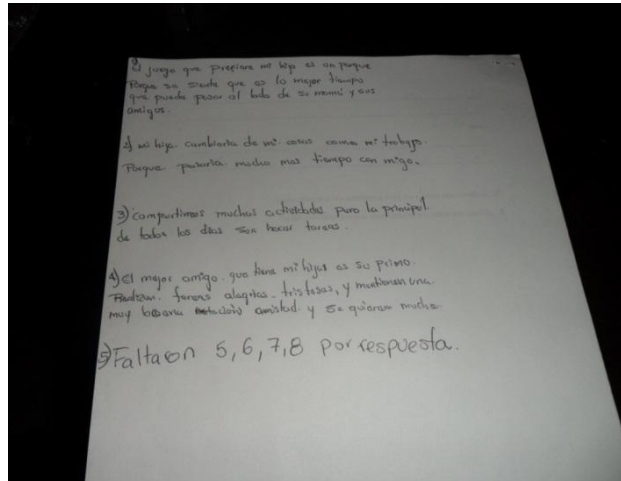 1) juego que prefiere mi hijo es un parque
Porque se siente que es lo mejor tiempo
que puede pasar al lado de su mamá y sus
amigos.
2) mi hijo cambiaria de mi cosas como mi trabajo.
Porque pasaria mucho mas tiempo con migo.
3) compartimos muchas actividades pero la principal
de todos los dias son hacer tareas.
4) el mejor amigo que tiene mi hijos es su primo.
Realizan tareas alegrias tristesas, y mantienen una
muy buena amistad y se quieren mucho.
5) Faltaron 5, 6, 7, 8 por respuesta.